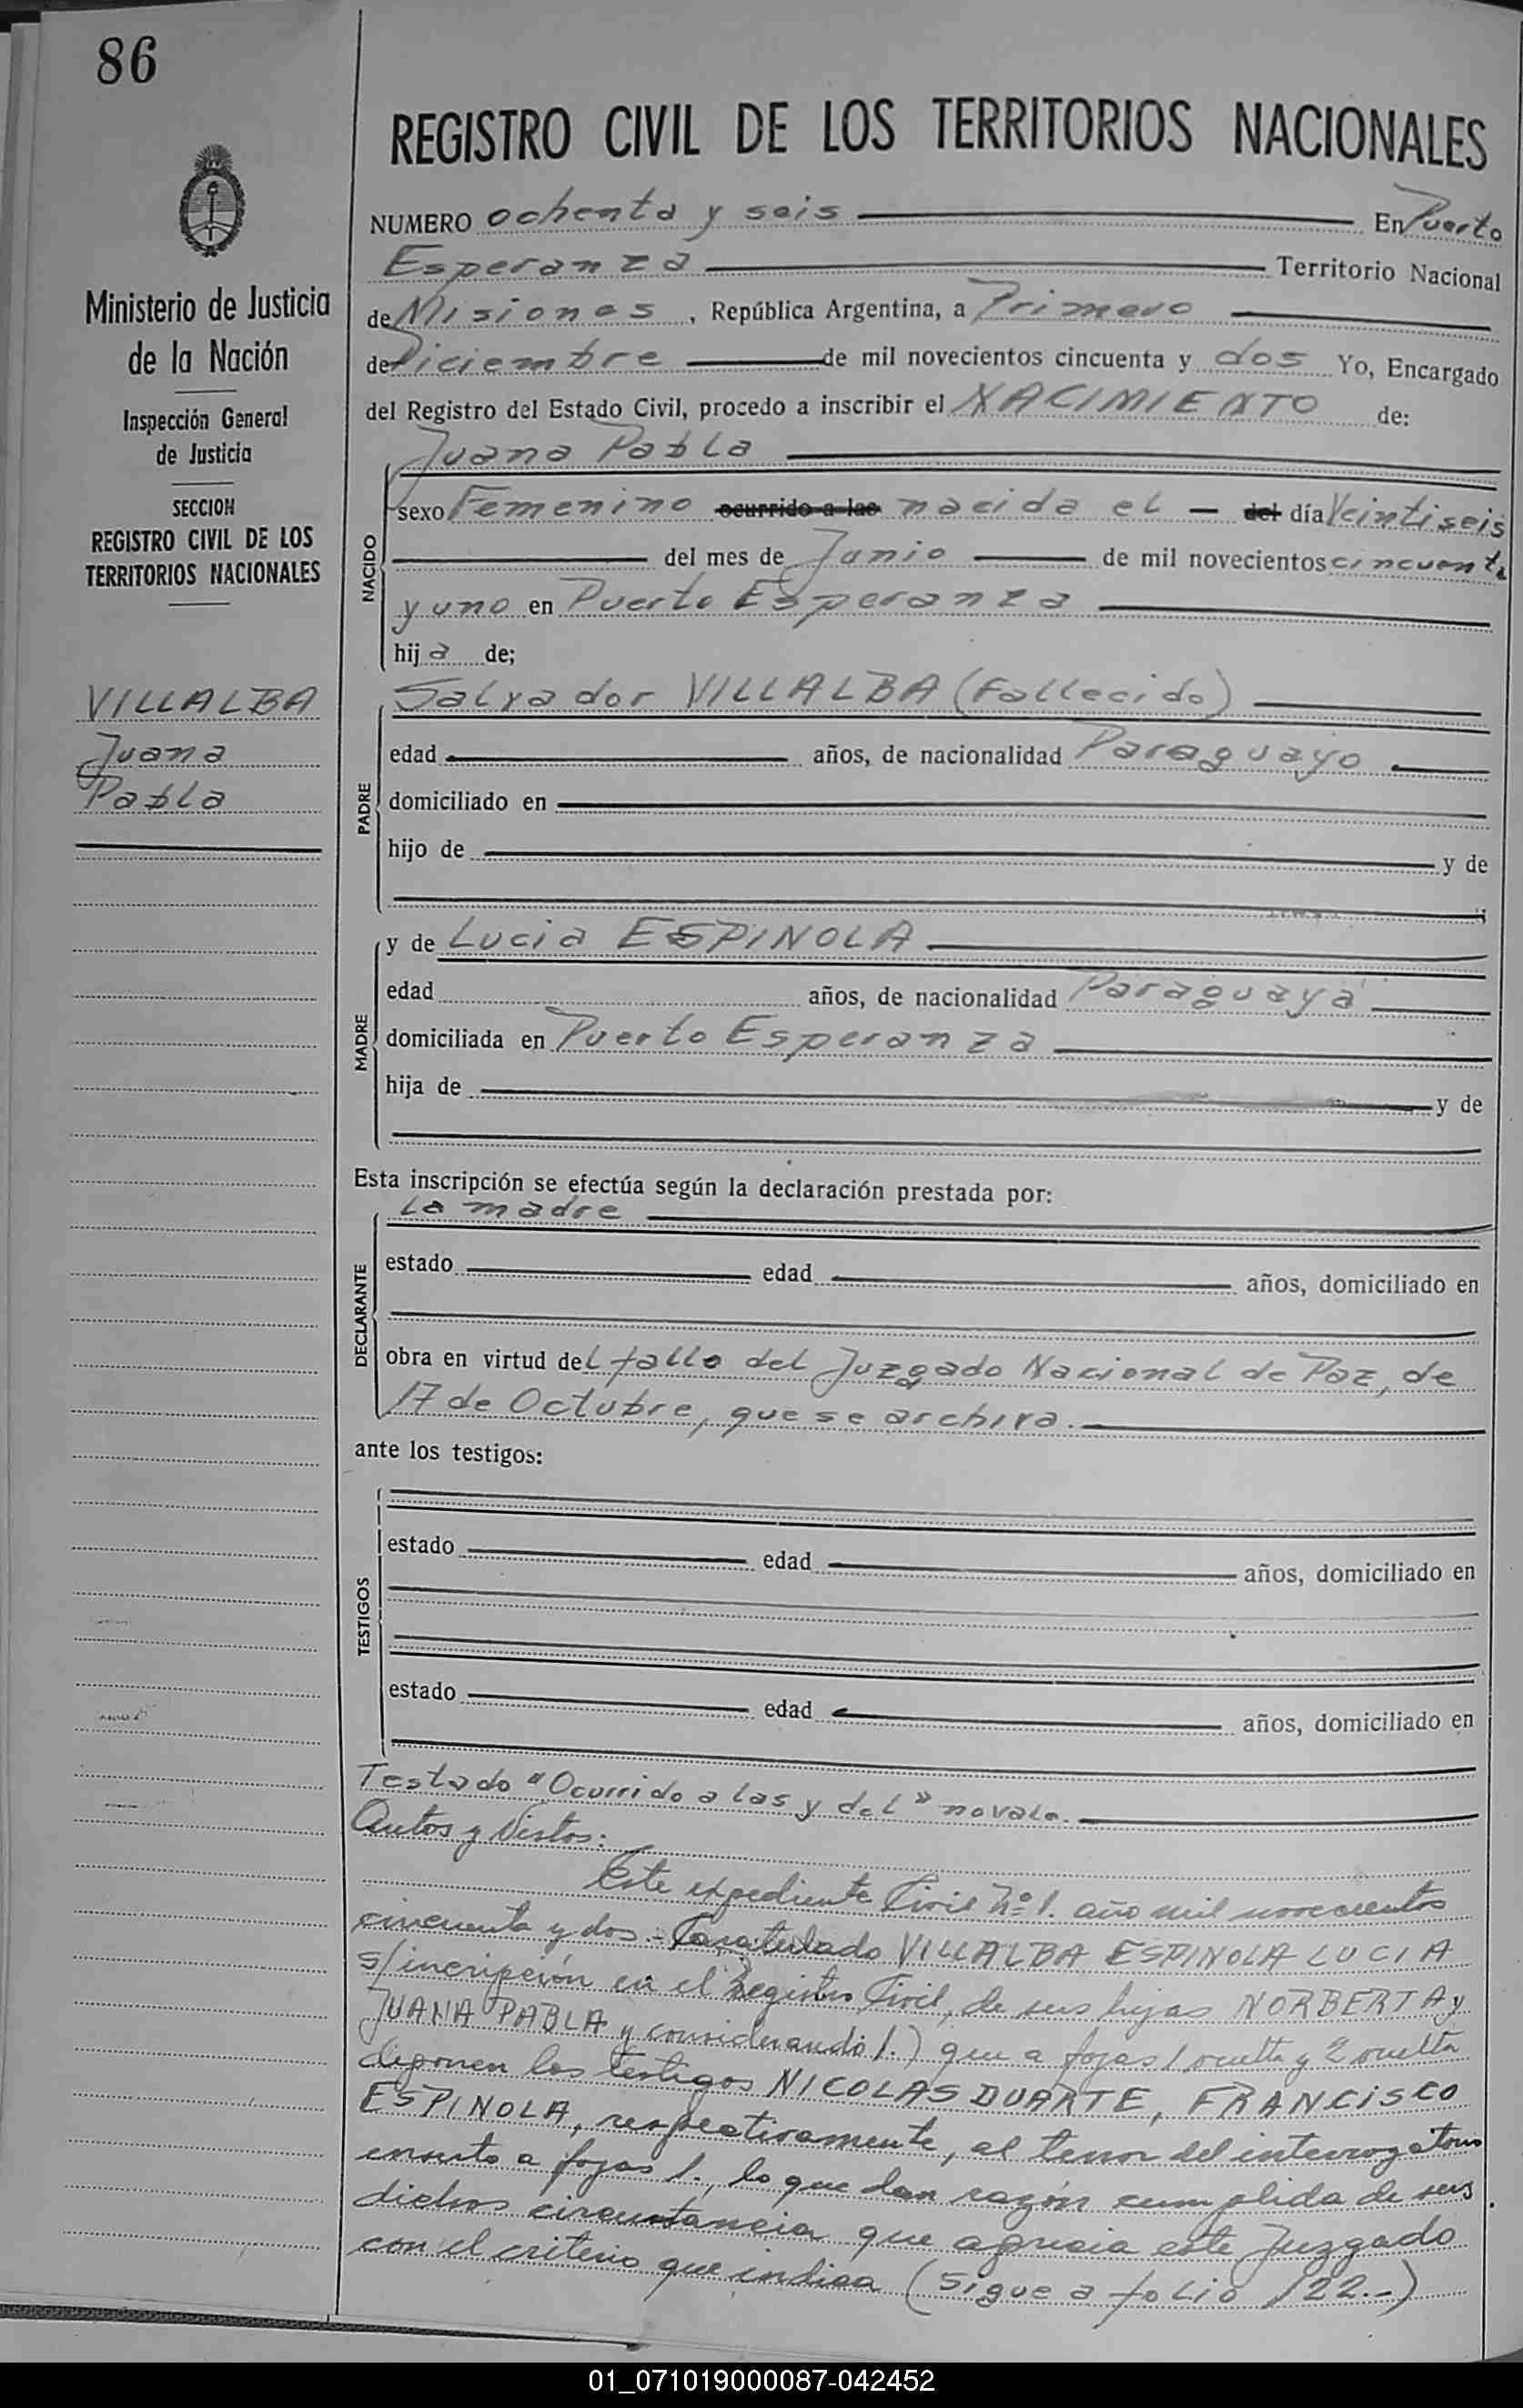 86
REGISTRO CIVIL DE LOS TERRITORIOS NACIONALES
Ministerio de Justicia
de la Nación
Inspección General
de Justicia
SECCION
REGISTRO CIVIL DE LOS
TERRITORIOS NACIONALES
VILLALBA
Juana
Pabla
NUMERO ochenta y seis En Puerto
Esperanza Territorio Nacional
de Misiones, República Argentina, a Primero
de Diciembre de mil novecientos cincuenta y dos Yo, Encargado
del Registro del Estado Civil, procedo a inscribir el NACIMIENTO de:
Juana Pabla
NACIDO
sexo Femenino ocurrido a las nacida el - del día Veintiseis
del mes de Junio de mil novecientos cincuenta
y uno en Puerto Esperanza
hija de;
Salvador VILLALBA (Fallecido)
PADRE
edad años, de nacionalidad Paraguayo
domiciliado en
hijo de y de
;
MADRE
y de Lucia ESPINOLA
edad años, de nacionalidad Paraguaya
domiciliada en Puerto Esperanza
hija de y de
Esta inscripción se efectúa según la declaración prestada por:
La madre
DECLARANTE
estado edad años, domiciliado en
obra en virtud del fallo del Juzgado Nacional de Paz, de
17 de Octubre, que se archiva.
ante los testigos:
TESTIGOS
estado edad años, domiciliado en
estado edad años, domiciliado en
Testado "Ocurrido a las y del" no vale.
Autos y Vistos:
Este expediente Civil Nº 1. año mil novecientos
cincuenta y dos - Caratulado VILLALBA ESPINOLA LUCIA
s/incripción en el Registro Civil, de sus hijas NORBERTA y
JUANA PABLA y considerando 1.) que a fojas 1 vuelta y 2 vuelta
deponen los testigos NICOLAS DUARTE, FRANCISCO
ESPINOLA, respectivamente, al tenor del interrogatorio
a fojas 1., lo que dan razón cumplida de sus
dichos circunstancia que aprecia este Juzgado
con el criterio que indica (Sigue a folio 122.-)
01_071019000087-042452